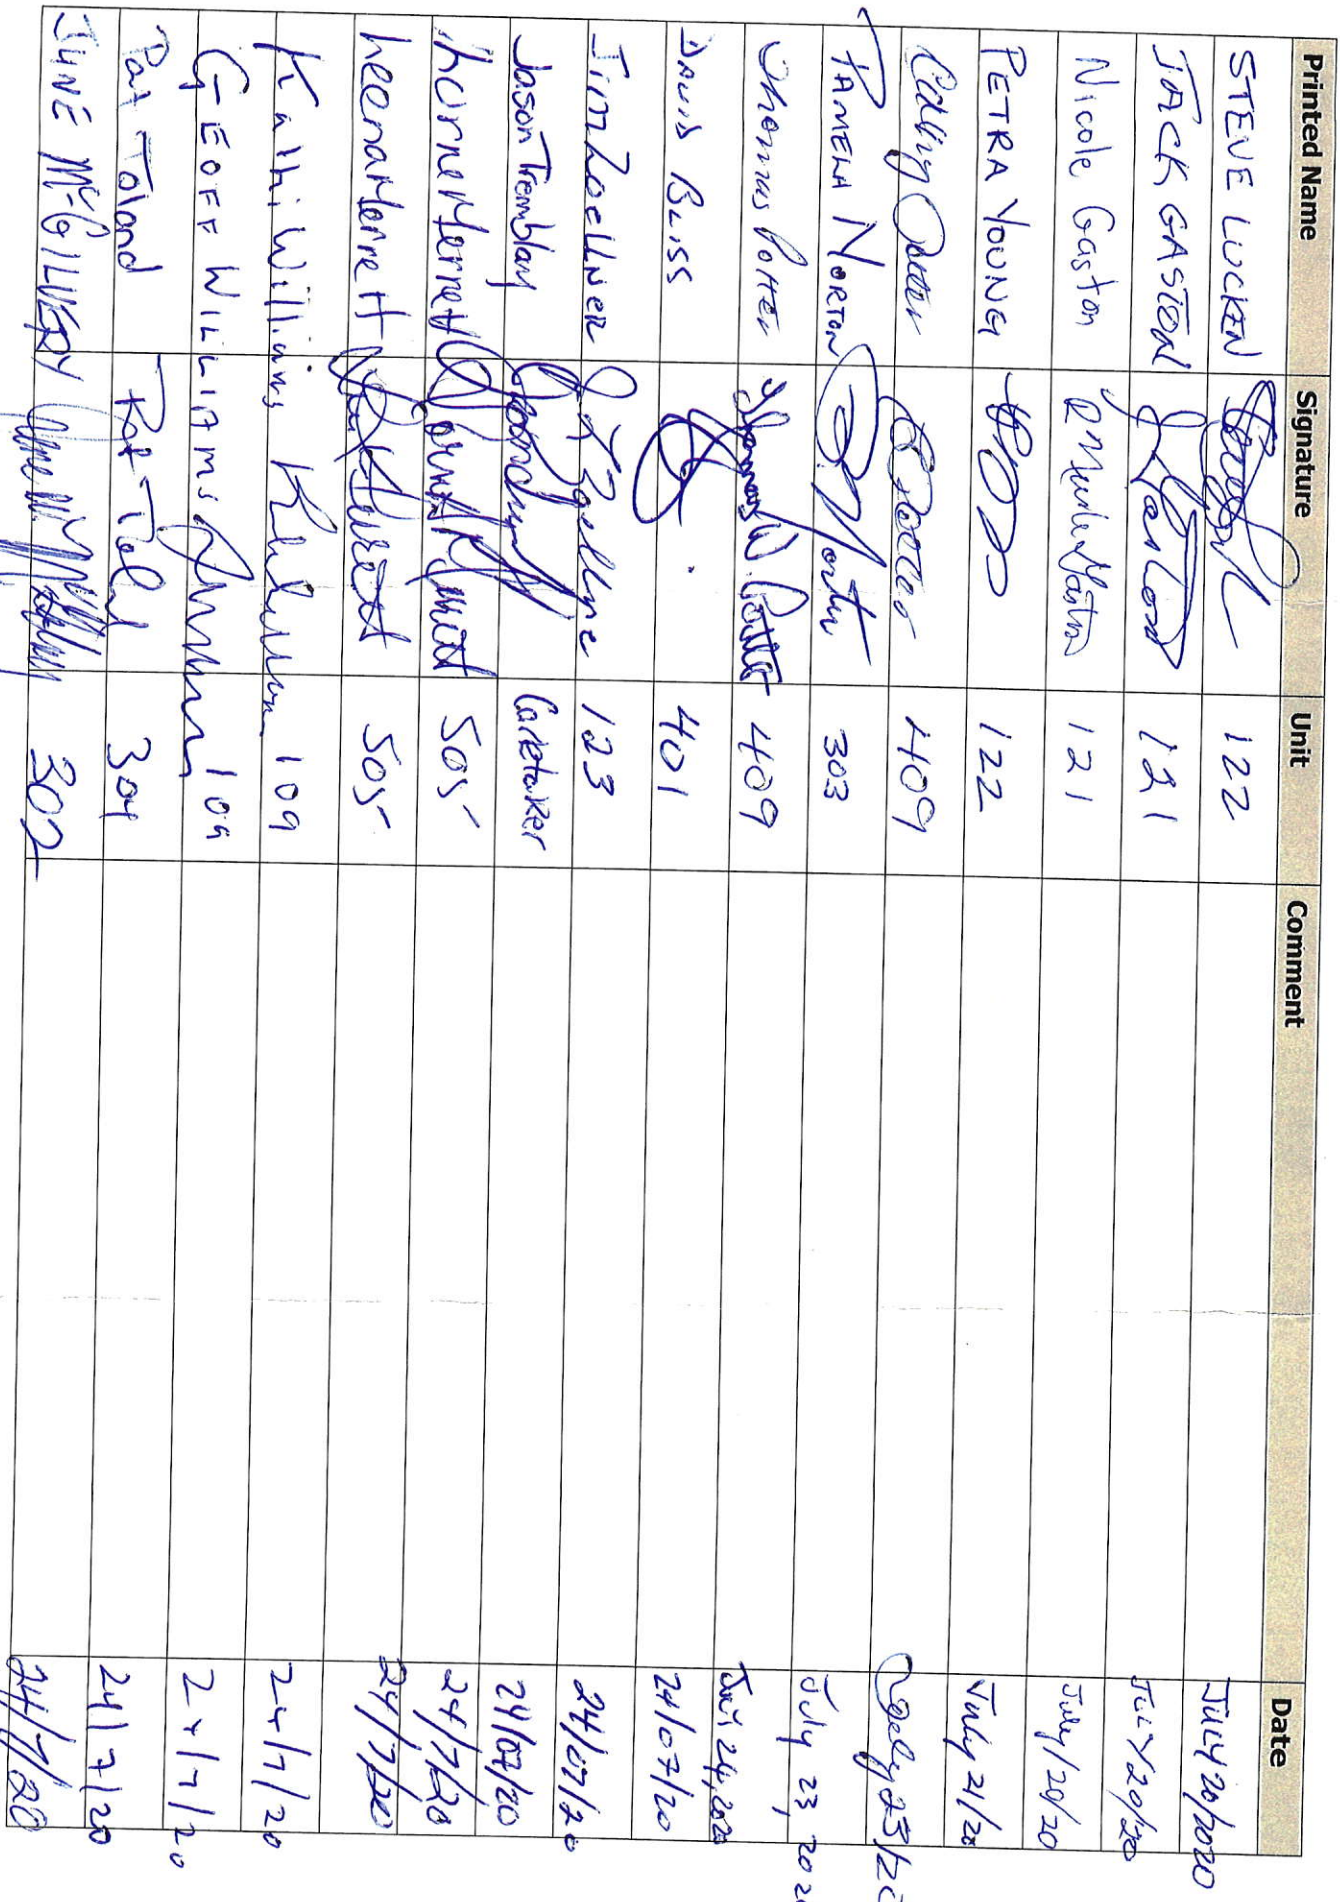 Printed Name Signature Unit Comment Date
STEVE LUCKEN 122 JULY 20/2020
JACK GASTON J Gaston 121 JULY 20/20
Nicole Gaston 121 July/20/20
PETRA YOUNG 122 July 21/20
Cathy Potter C Potter 409 July 23/20
PAMELA NORTON P. Norton 303 July 23, 202
Thomas Potter Thomas W. Potter 409 24, 2020
DAVID BLISS 401 24/07/20
Jim Zoellner J Zoellner 123 24/07/20
Jason Tremblay Caretaker 24/07/20
505 24/7/20
505 24/7/20
Kathi Williams 109 24/7/20
GEOFF WILLIAMS 109 24/7/20
Pat Toland Pat Toland 304 24/7/20
JUNE McGILVERY 302 24/7/20